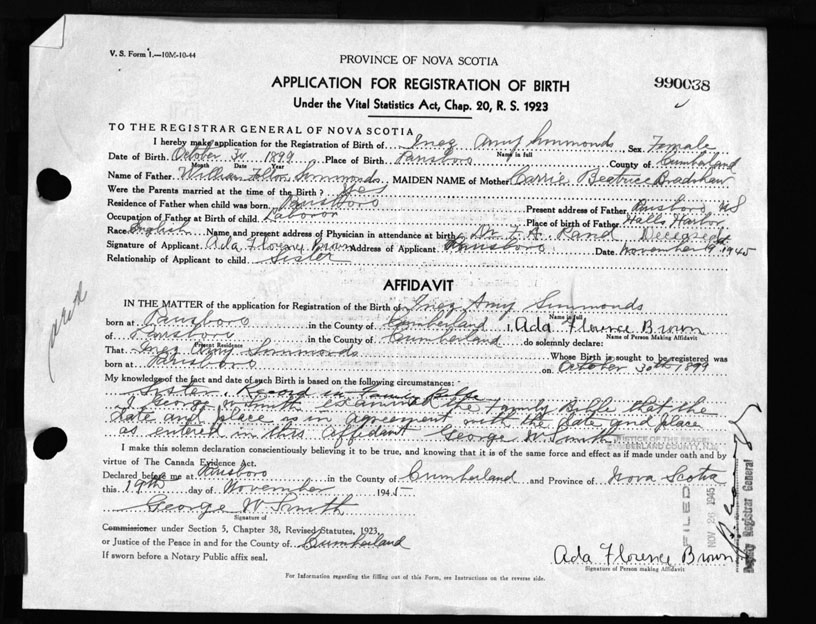 V. S. Form 1.—10M-10-44
PROVINCE OF NOVA SCOTIA
APPLICATION FOR REGISTRATION OF BIRTH
990038
Under the Vital Statistics Act, Chap. 20, R. S. 1923
TO THE REGISTRAR GENERAL OF NOVA SCOTIA
I hereby make application for the Registration of Birth of Inez Amy Simmonds Sex Female
Name in full
Date of Birth October 30 1899 Place of Birth Parrsboro County of Cumberland
Month Date Year
Name of Father William Simmonds MAIDEN NAME of Mother Carrie Beatrice Bradshaw
Were the Parents married at the time of the Birth? Yes
Residence of Father when child was born Parrsboro Present address of Father Parrsboro NS
Occupation of Father at Birth of child Laboror Place of birth of Father Halls Harbor
Race English Name and present address of Physician in attendance at birth Dr. F. A. Rand Deceased
Signature of Applicant Ada Florence Brown Address of Applicant Parrsboro Date November 19th 1945
Relationship of Applicant to child Sister
AFFIDAVIT
IN THE MATTER of the application for Registration of the Birth of Inez Amy Simmonds
Name in full
born at Parrsboro in the County of Cumberland I, Ada Florence Brown
Name of Person Making Affidavit
of Parrsboro in the County of Cumberland do solemnly declare:
Present Residence
That Inez Amy Simmonds Whose Birth is sought to be registered was
born at Parrsboro on October 30th 1899
My knowledge of the fact and date of such Birth is based on the following circumstances:
Sister Record in Family Bible
I George W Smith examined the Family Bible that the
date and place is in agreement with the date and place
as entered in this affidavit George W. Smith
I make this solemn declaration conscientiously believing it to be true, and knowing that it is of the same force and effect as if made under oath and by
virtue of The Canada Evidence Act.
Declared before me at Parrsboro in the County of Cumberland and Province of Nova Scotia
this 19th day of November 1945
George W Smith
Signature of
Commissioner under Section 5, Chapter 38, Revised Statutes, 1923,
or Justice of the Peace in and for the County of Cumberland
If sworn before a Notary Public affix seal.
Ada Florence Brown
Signature of Person making Affidavit
FILED
NOV 26 1945
Deputy Registrar General
For Information regarding the filling out of this Form, see Instructions on the reverse side.